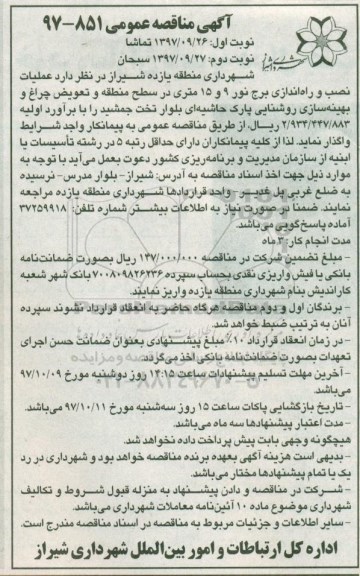 آگهی مناقصه عمومی ۸۵۱-۹۷
نوبت اول: ۱۳۹۷/۰۹/۲۶ تماشا
نوبت دوم: ۱۳۹۷/۰۹/۲۷ سبحان
شهرداری منطقه یازده شیراز در نظر دارد عملیات
نصب و راه‌اندازی برج نور ۹ و ۱۵ متری در سطح منطقه و تعویض چراغ و
بهینه‌سازی روشنایی پارک حاشیه‌ای بلوار تخت جمشید را با برآورد اولیه
۲/۹۳۴/۴۴۷/۸۸۳ ریال، از طریق مناقصه عمومی به پیمانکار واجد شرایط
واگذار نماید. لذا از کلیه پیمانکاران دارای حداقل رتبه ۵ در رشته تأسیسات یا
ابنیه از سازمان مدیریت و برنامه‌ریزی کشور دعوت بعمل می‌آید با توجه به
موارد ذیل جهت اخذ اسناد مناقصه به آدرس: شیراز- بلوار مدرس- نرسیده
به ضلع غربی پل غدیر- واحد قراردادها شهرداری منطقه یازده مراجعه
نمایند. ضمناً در صورت نیاز به اطلاعات بیشتر شماره تلفن: ۳۷۲۵۹۹۱۸
آماده پاسخ‌گویی می‌باشد.
مدت انجام کار: ۳ ماه
- مبلغ تضمین شرکت در مناقصه ۱۴۷/۰۰۰/۰۰۰ ریال بصورت ضمانت‌نامه
بانکی یا فیش واریزی نقدی بحساب سپرده ۷۰۰۸۰۹۸۲۶۲۳۶ بانک شهر شعبه
کاراندیش بنام شهرداری منطقه یازده واریز نمایند.
- برندگان اول و دوم مناقصه هرگاه حاضر به انعقاد قرارداد نشوند سپرده
آنان به ترتیب ضبط خواهد شد.
- در زمان انعقاد قرارداد ۱۰٪ مبلغ پیشنهادی بعنوان ضمانت حسن اجرای
تعهدات بصورت ضمانت‌نامه بانکی اخذ می‌گردد.
- آخرین مهلت تسلیم پیشنهادات ساعت ۱۴:۱۵ روز دوشنبه مورخ ۹۷/۱۰/۰۹
می‌باشد.
- تاریخ بازگشایی پاکات ساعت ۱۵ روز سه‌شنبه مورخ ۹۷/۱۰/۱۱ می‌باشد.
- مدت اعتبار پیشنهادها سه ماه می‌باشد.
هیچگونه وجهی بابت پیش پرداخت داده نخواهد شد.
- بدیهی است هزینه آگهی بعهده برنده مناقصه خواهد بود و شهرداری در رد
یک یا تمام پیشنهادها مختار می‌باشد.
- شرکت در مناقصه و دادن پیشنهاد به منزله قبول شروط و تکالیف
شهرداری موضوع ماده ۱۰ آئین‌نامه معاملات شهرداری می‌باشد.
- سایر اطلاعات و جزئیات مربوط به مناقصه در اسناد مناقصه مندرج است.
اداره کل ارتباطات و امور بین‌الملل شهرداری شیراز